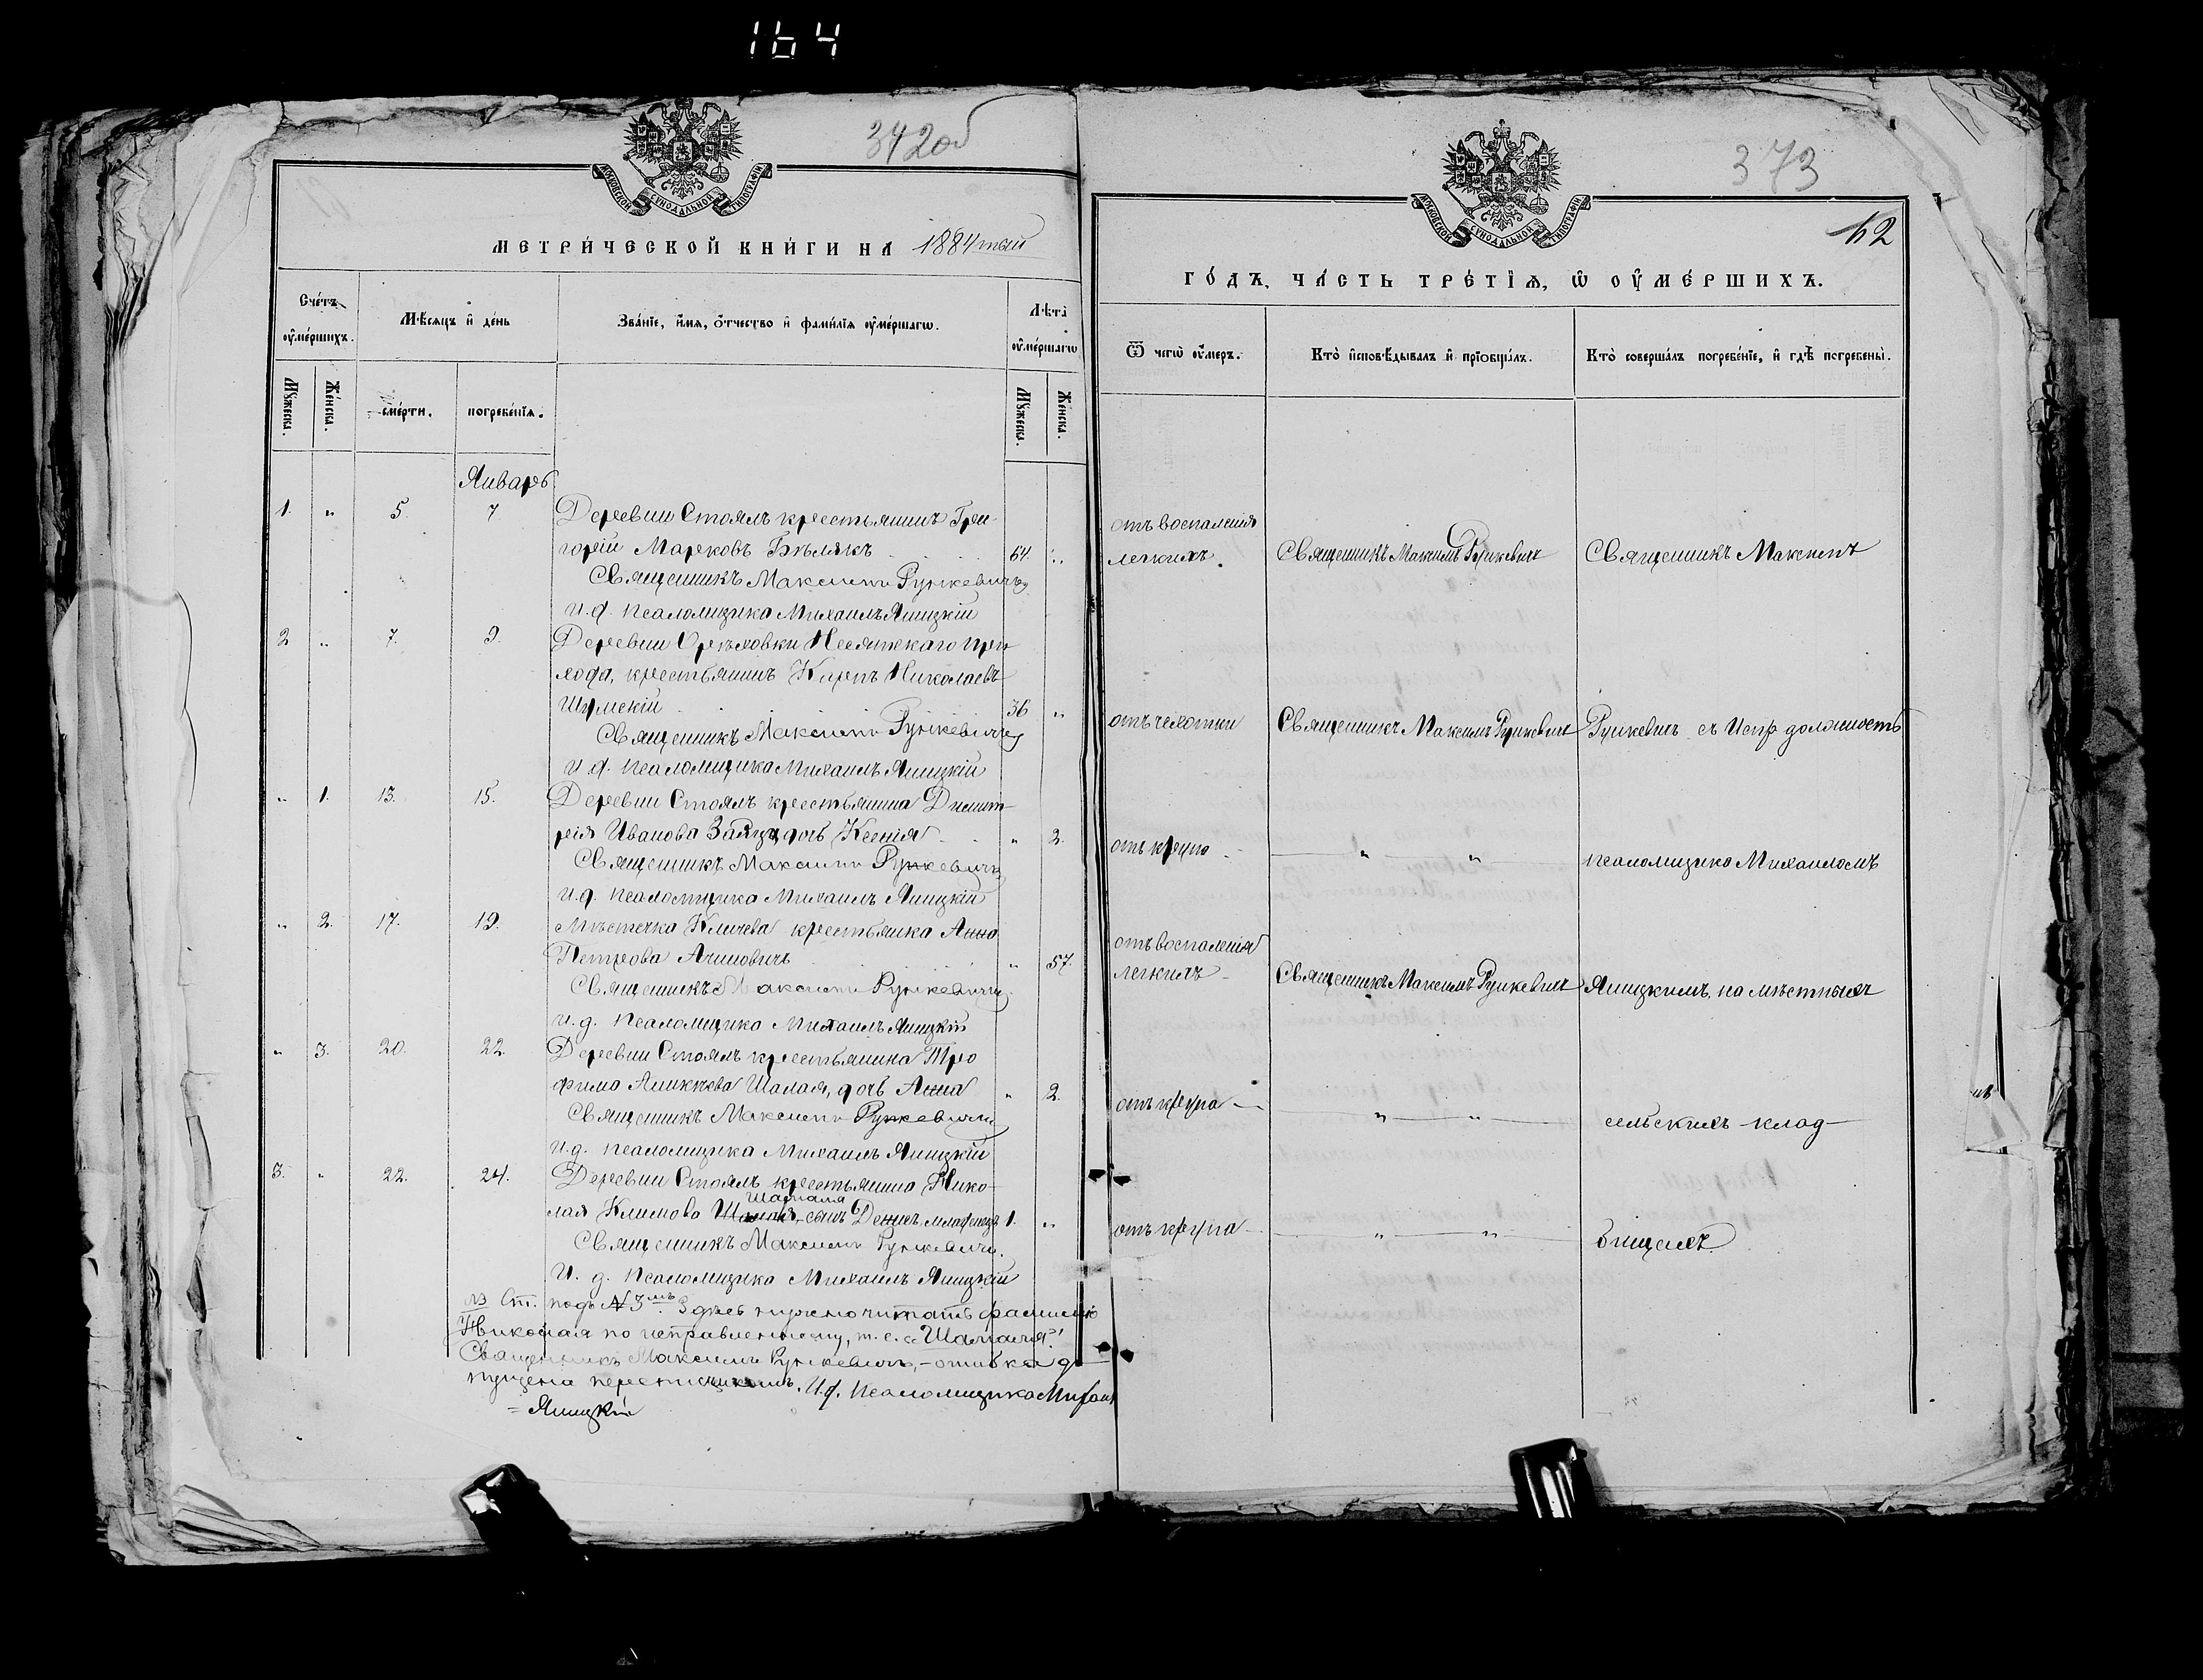 164
342об
МОСКОВСКОЙ СѴНОДАЛЬНОЙ ТИПОГРАФІИ
МЕТРИ́ЧЕСКОЙ КНИ́ГИ НА 1884тый
Сче́тъ ᲂу҆ме́ршихъ.
Мѣ́сяцъ и҆ де́нь
Зва́нїе, и҆́мѧ, ѻ҆́тчество и҆ фами́лїѧ ᲂу҆ме́ршагѡ.
Лѣ̀та ᲂу҆ме́ршагѡ
Мꙋ́жеска.
Же́нска.
сме́рти.
погребе́нїѧ.
Мꙋ́жеска.
Же́нска.
Январь
1. " 5. 7 Деревни Стоялъ крестьянинъ Гри-
горій Марковъ Бѣлякъ 64. "
Священникъ Максимъ Рункевичъ
и.д. псаломщика Михаилъ Яницкій
2 " 7. 9. Деревни Орѣховки Несятскаго при-
хода, крестьянинъ Карпъ Николаевъ
Шумскій 36 "
Священникъ Максимъ Рункевичъ
и.д. псаломщика Михаилъ Яницкій
" 1. 13. 15. Деревни Стоялъ крестьянина Димит-
рія Иванова Зайца дочь Ксенія " 2.
Священникъ Максимъ Рункевичъ
и.д. псаломщика Михаилъ Яницкій
" 2. 17. 19. Мѣстечка Кличева крестьянка Анна
Петрова Ачиновичъ " 57.
Священникъ Максимъ Рункевичъ
и.д. псаломщика Михаилъ Яницкій
" 3. 20. 22. Деревни Стоялъ крестьянина Тро-
фима Аникѣева Шалая, дочь Анна " 2.
Священникъ Максимъ Рункевичъ
и.д. псаломщика Михаилъ Яницкій
3. " 22. 24. Деревни Стоялъ крестьянина Нико-
лая Климова сынъ Денисъ, младенецъ 1. "
Священникъ Максимъ Рункевичъ.
И. д. псаломщика Михаилъ Яницкій
Ст. подъ №3мъ. Здѣсь нужно читать фамилію
Николая по исправленному, т. е.
Священникъ Максимъ Рункевичъ,-ошибка до-
пущена переписчикомъ. И.д. псаломщика Михаилъ
Яницкій
373
62
МОСКОВСКОЙ СѴНОДАЛЬНОЙ ТИПОГРАФІИ
ГО́ДЪ, ЧА́СТЬ ТРЕ́ТЇѦ, Ѡ҆ ОУ҆МЕ́РШИХЪ.
Ѿ чегѡ̀ ᲂу҆́меръ.
Кто̀ и҆сповѣ́дывалъ и҆ прїобща́лъ.
Кто̀ соверша́лъ погребе́нїе, и҆ гдѣ̀ погребены̀.
отъ воспаленія
легкихъ. Священникъ Максимъ Рункевичъ Священникъ Максимъ
отъ чахотки Священникъ Максимъ Рункевичъ Рункевичъ съ Испр. должность
отъ крупа " " псаломщика Михаиломъ
отъ воспаленія
легкихъ Священникъ Максимъ Рункевичъ Яницкимъ, на мѣстныхъ
отъ крупа " " сельскихъ клад-
отъ крупа " " бищахъ